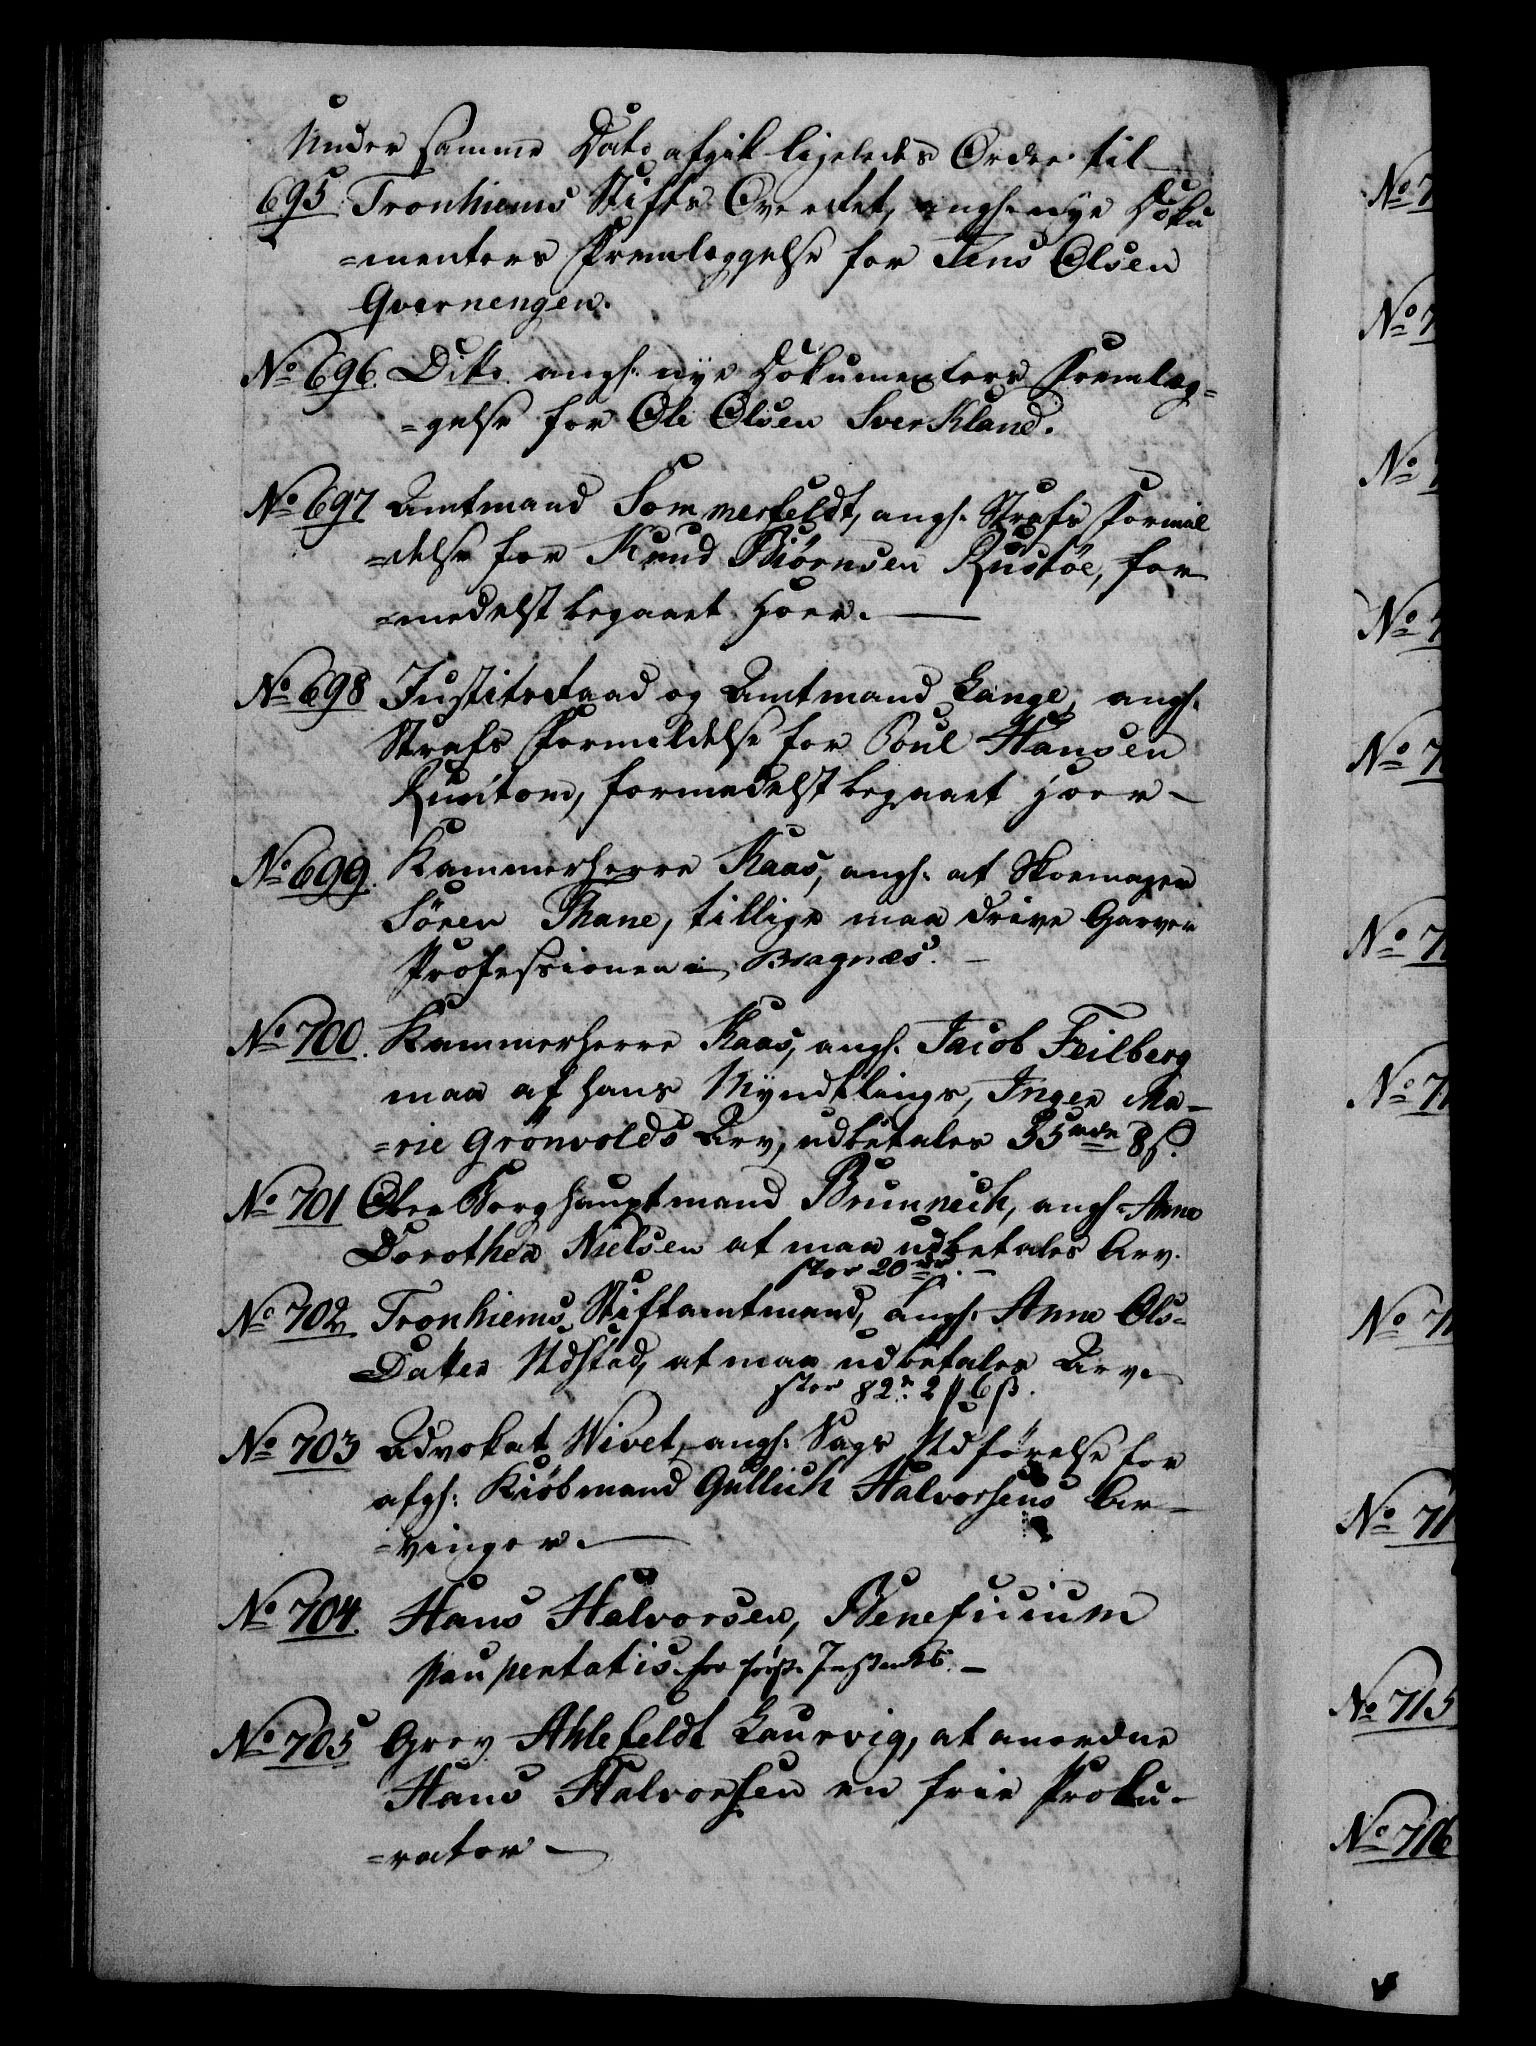 Under samme Dato afgik ligeledes Ordre til
695 Tronhiems Stifts Overret, angh. nye Doku
=menters Fremlæggelse for Jens Olsen
Qvernengen.
No 696. Dito angh. nye Dokumenters Fremlæg=
=gelse for Ole Olsen Sverkland.
No 697 Amtmand Sommerfeldt, angh. Strafs Formil
=delse for Knud Biörnsen Rustöe, for
=medelst begaaet Hoer.
No 698 Justitsraad og Amtmand Lange, angh.
Strafs Formildelse for Poul Hansen
formedelst begaaet Hoer
No 699. Kammerherre Kaas, angh. at Skoemager
Sören Thane, tillige maa drive Garver
Professionen i Bragnæs.
No 700. Kammerherre Kaas, angh. Jacob Feilberg
maa af hans Myndtlings, Inger Ma-
=rie Grönvolds Arv, udbetales 35 rdr 8 ß.
No 701 Ober Berghauptmand Brünnech, angh. Anne
Dorothea Nielsen at maa udbetales Arv.
stor 20 rdr.
No 702 Tronhiems Stiftamtmand, angh. Anne Ols=
Datter Udstad, at maa udbetales Arv
stor 82 r. 2 ƒ 6 ß.
No 703 Advokat Wivet, angh. Sags Udförelse for
afgh: Kiöbmand Gullich Halvorsens Ar-
=vinger.
No 704. Hans Halvorsen, Beneficium
paupertatis for förste Instants.
No 705 Grev Ahlefeldt Laurvig, at anordne
Hans Halvorsen en frie Proku-
=rator
No 7
No 7
No 7
No 7
No 7
No 7
No 71
No 71
No 71
No 715
No 716